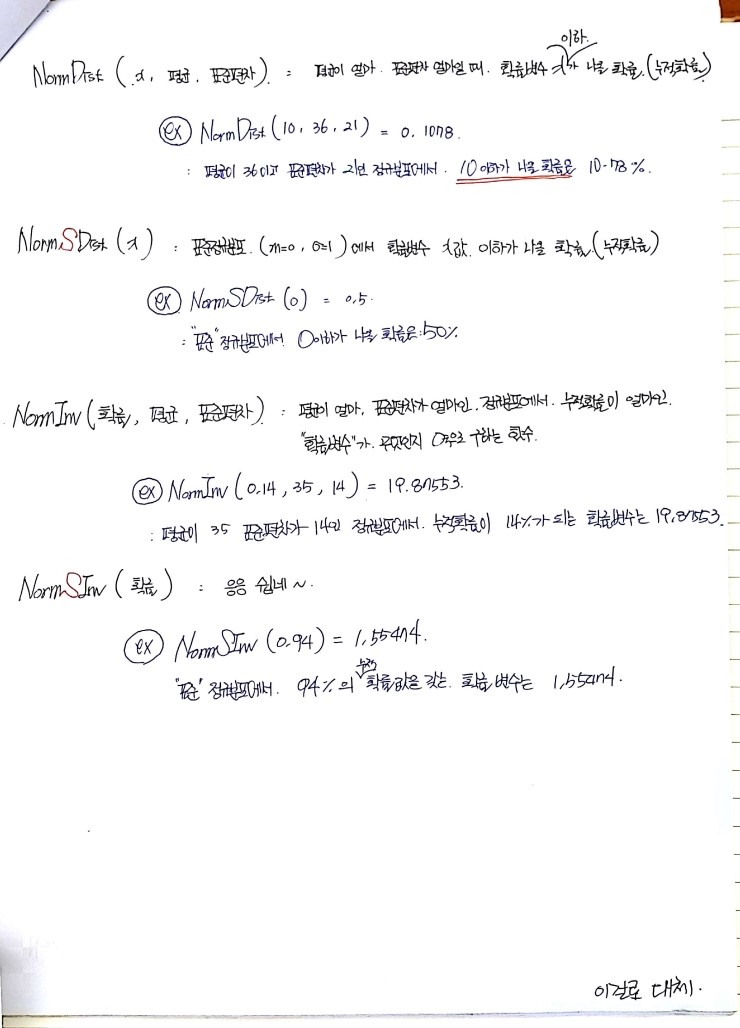 이하.
NormDist ( x, 평균, 표준편차) : 평균이 얼마. 표준편차 얼마일 때. 확률변수 x가 나올 확률. (누적확률)
ex NormDist (10, 36, 21) = 0.1078.
: 평균이 36이고 표준편차가 21인 정규분포에서. 10 이하가 나올 확률은 10.78 %.
NormSDist (x) : 표준정규분포. (m=0, σ=1) 에서 확률변수 x값. 이하가 나올 확률. (누적확률)
ex NormSDist (0) = 0.5.
: "표준" 정규분포에서 0이하가 나올 확률은 50%
NormInv (확률, 평균, 표준편차) : 평균이 얼마, 표준편차가 얼마인. 정규분포에서. 누적확률이 얼마인.
"확률변수"가. 무엇인지 역으로 구하는 함수.
ex NormInv (0.14, 35, 14) = 19.87553.
: 평균이 35 표준편차가 14인 정규분포에서. 누적확률이 14%가 되는 확률변수는 19.87553.
NormSInv (확률) : 응응 쉽네 ~.
ex NormSInv (0.94) = 1.55474.
누적
"표준" 정규분포에서. 94%의 확률값을 갖는. 확률변수는 1.55474.
이걸로 대체.